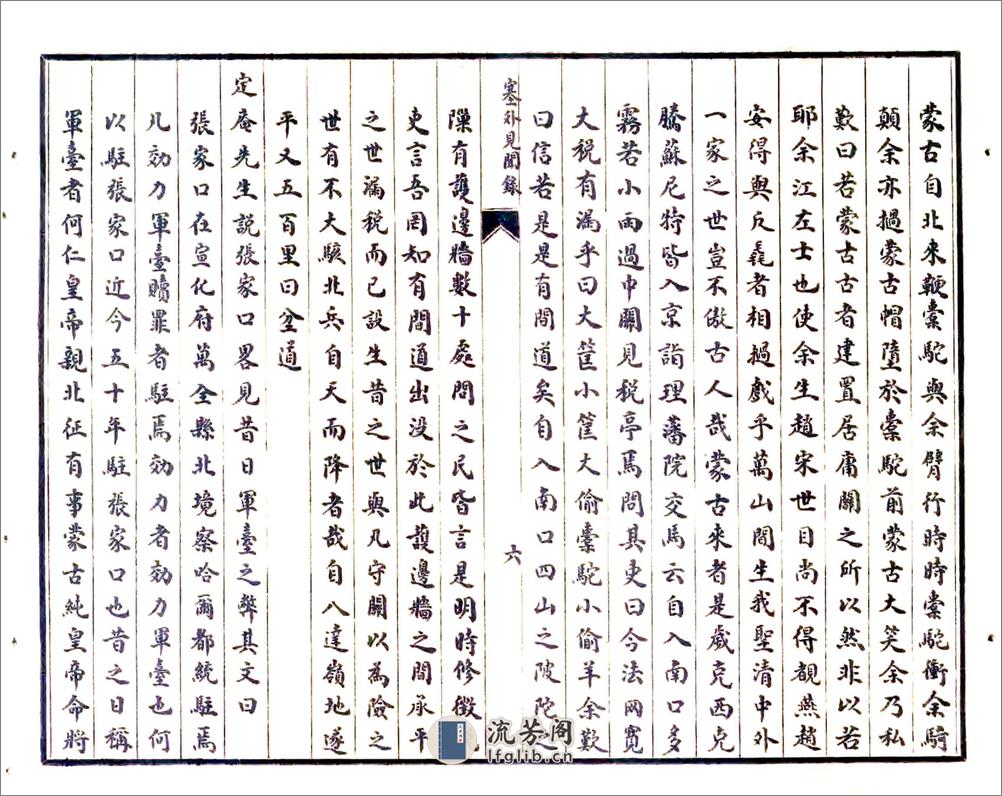 蒙古自北來鞭橐駝與余臂行時時橐駝衝余騎
顛余亦撾蒙古帽墮於橐駝前蒙古大笑余乃私
歎曰若蒙古古者建置居庸關之所以然非以若
耶余江左士也使余生趙宋世目尚不得覩燕趙
安得與反毳者相撾戲乎萬山間生我聖清中外
一家之世豈不傲古人哉蒙古來者是歲克西克
騰蘇尼特皆入京詣理藩院交馬云自入南口多
霧若小雨過中關見稅亭焉問其吏曰今法网寬
大稅有漏乎曰大筐小筐大偷橐駝小偷羊余歎
曰信若是是有間道矣自入南口四山之陂陀之
塞外見聞錄
六
隟有護邊牆數十處問之民皆言是明時修徵
吏言吾固知有間道出没於此護邊牆之間承平
之世漏稅而已設生昔之世與凡守關以為險之
世有不大駭北兵自天而降者哉自八達嶺地遂
平又五百里曰坌道
定庵先生說張家口畧見昔日軍臺之弊其文曰
張家口在宣化府萬全縣北境察哈爾都統駐焉
凡効力軍臺贖罪者駐焉効力者効力軍臺也何
以駐張家口近今五十年駐張家口也昔之日稱
軍臺者何仁皇帝親北征有事蒙古純皇帝命將
流芳阁
lfglib.cn